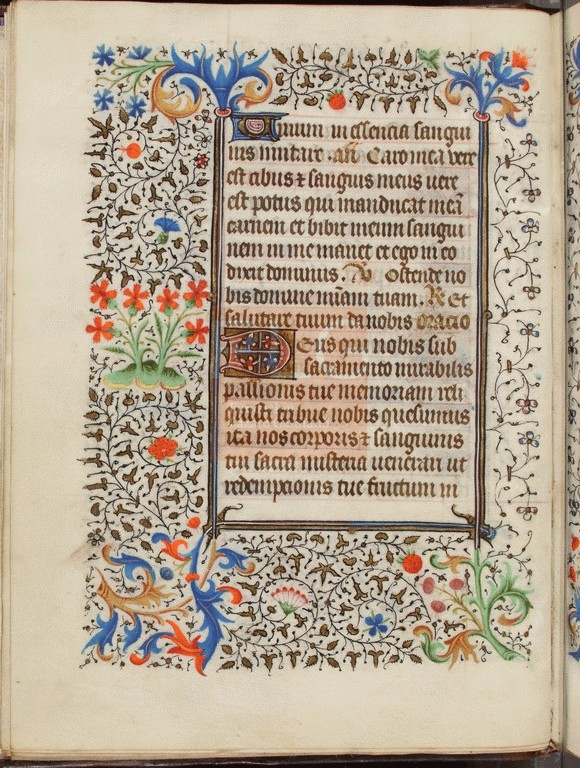 Uinum in essencia sangui
nis mutare. añ. Caro mea vere
est cibus ⁊ sanguis meus uere
est potus qui manducat meā
carnem et bibit meum sangui
nem in me manet et ego in eo
dixit dominus. V̄. Ostende no
bis domine m̄iam tuam. R̄. Et
salutare tuum da nobis oracio
Deus qui nobis sub
sacramento mirabilis
passionis tue memoriam reli
quisti tribue nobis quesumus
ita nos corporis ⁊ sanguinis
tui sacra misteria uenerari ut
redempcionis tue fructum in